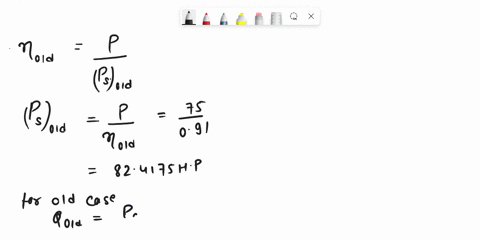 η_old = P / (P_s)_old
(P_s)_old = P / η_old = 75 / 0.91
= 82.4175 H.P
for old case
Q_old = P